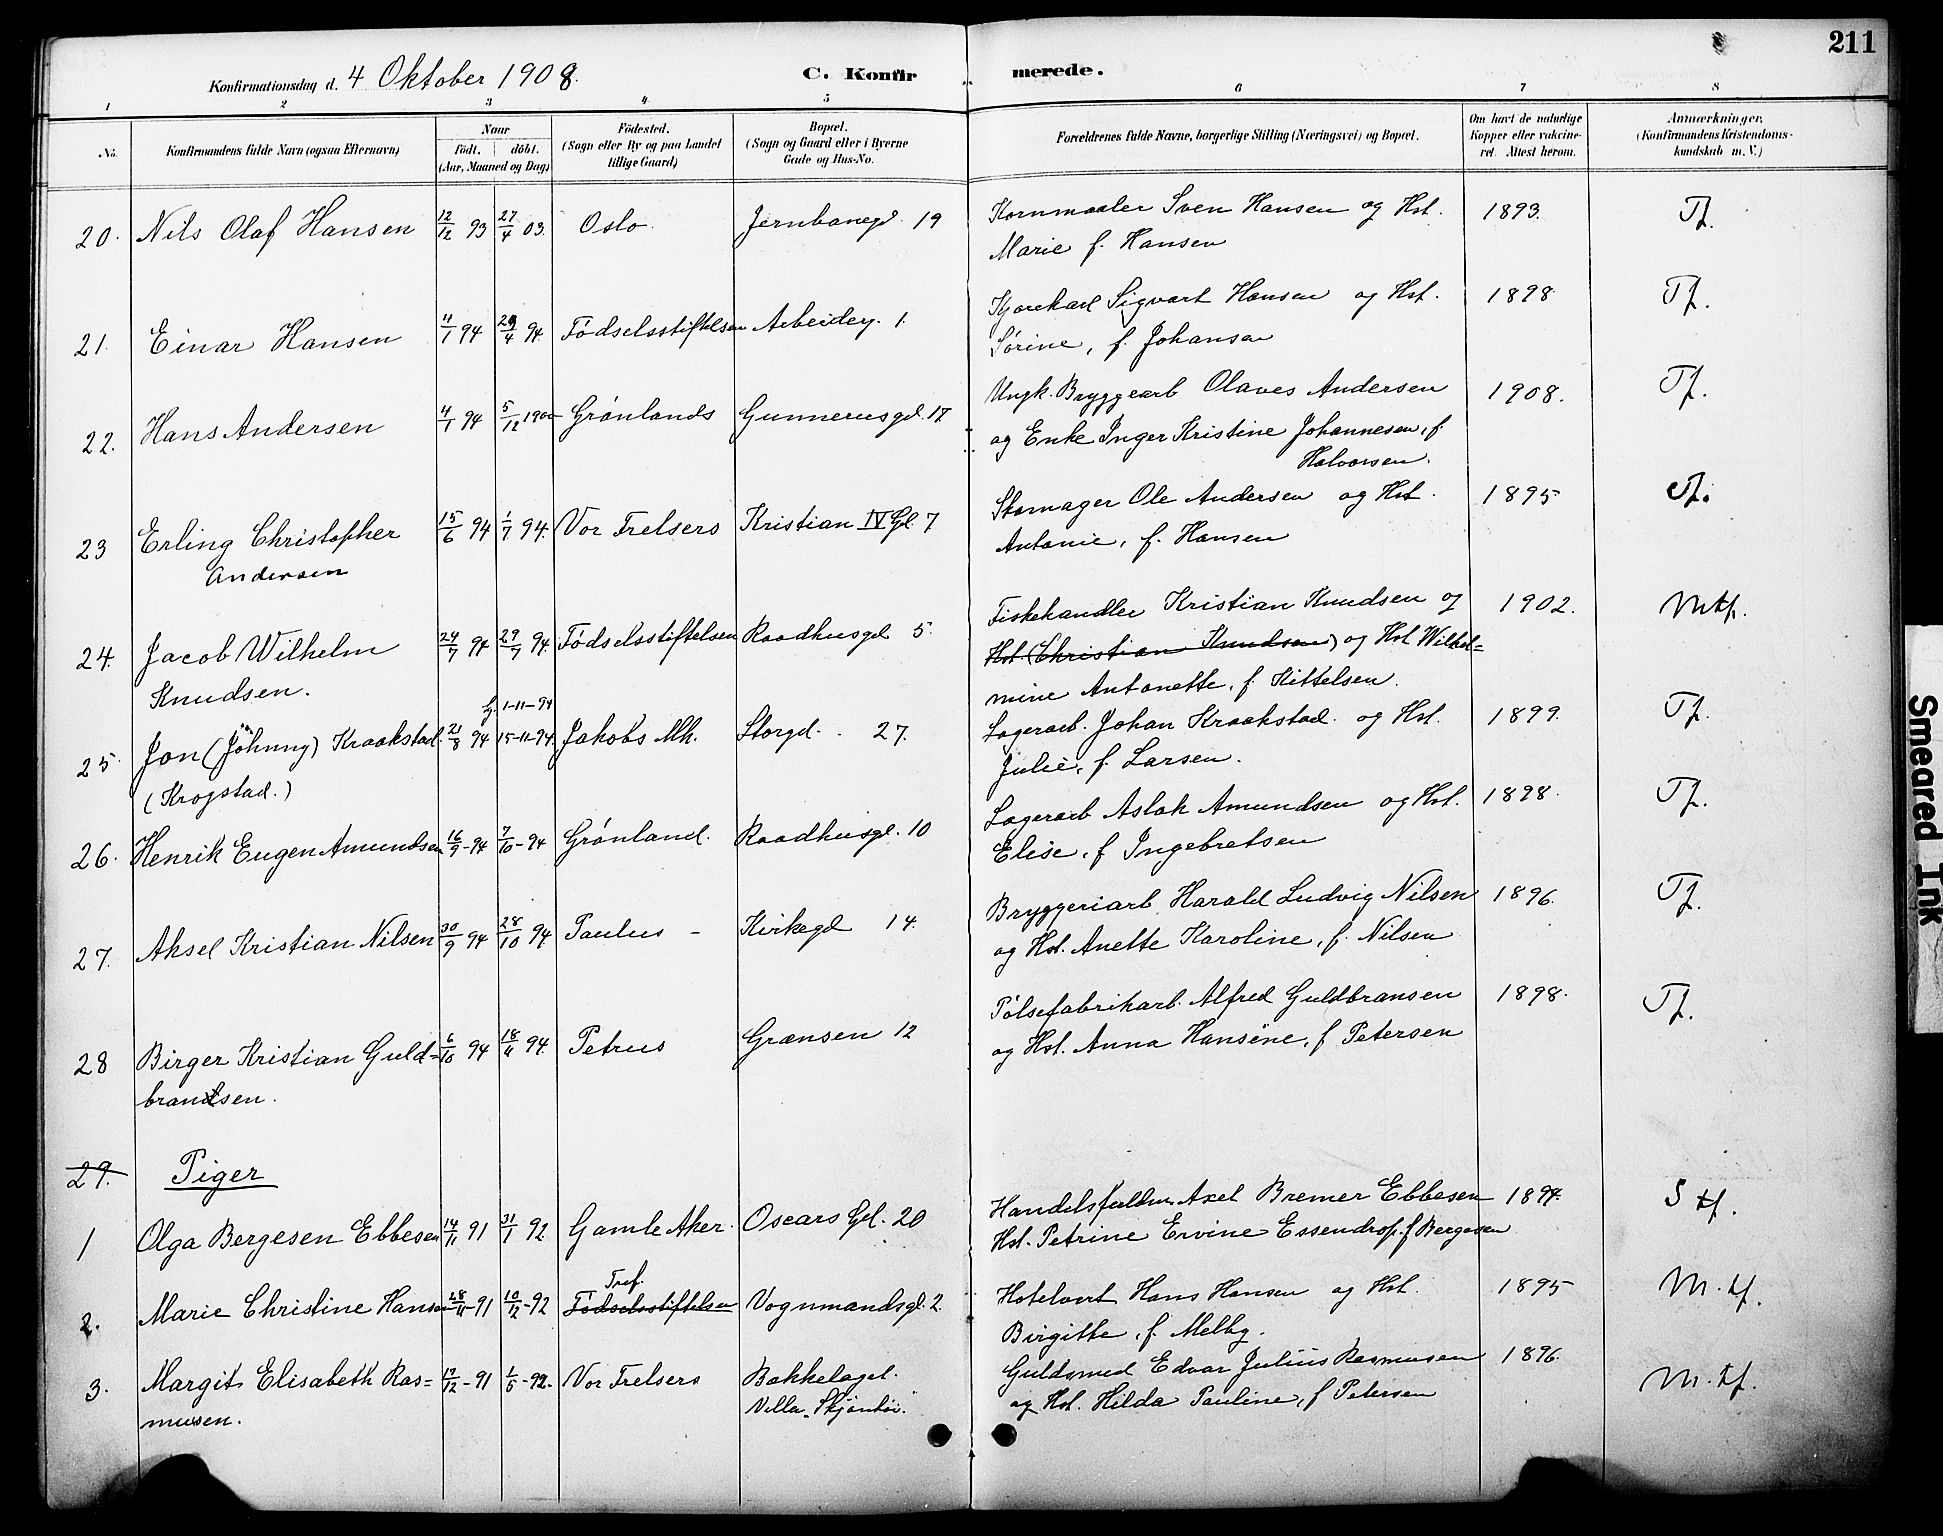 211
Konfirmationsdag d. 4 Oktober 1908.
C. Konfirmerede.
1 2 3 4 5 6 7 8
No.
Konfirmandens fulde Navn (ogsaa Efternavn)
Naar
födt. döbt.
(Aar, Maaned og Dag)
Födested.
(Sogn eller By og paa Landet
tillige Gaard)
Bopæl.
(Sogn og Gaard eller i Byerne
Gade og Hus-No.
Forældrenes fulde Navne, borgerlige Stilling (Næringsvei) og Bopæl.
Om havt de naturlige
Kopper eller vakcine-
ret. Attest herom.
Anmærkninger.
(Konfirmandens Kristendoms-
kundskab m. V.)
20. Nils Olaf Hansen 12/12 93 27/4 03. Oslo. Jernbanegd. 19 Kornmaaler Sven Hansen og Hst. 1893. Tf.
Marie f. Hansen
21. Einar Hansen 4/1 94 29/4 94. Fødselsstiftelsen Arbeiderg. 1. Kjørekarl Sigvart Hansen og Hst. 1898 Tf.
Sørine, f. Johansen
22. Hans Andersen 4/1 94 5/12 1900 Grønlands Gunnerusgd. 17. Ungk. Bryggearb Olaves Andersen 1908. Tf.
og Enke Inger Kristine Johannesen, f.
Halvorsen.
23 Erling Christopher 15/6 94 1/7 94. Vor Frelsers Kristian IV Gd. 7 Skomager Ole Andersen og Hst. 1895 Tf.
Andersen Antonie, f. Hansen
24. Jacob Wilhelm 24/7 94 29/7 94. Fødselsstiftelsen Raadhusgd 5. Fiskehandler Kristian Knudsen og 1902. Mtf.
Hst. (Christian Knudsen) og Hst Wilhel=
Knudsen. mine Antonette, f. Kittelsen.
1-11-94
25. Jon (Johnny) Kraakstad. 21/8 94 15-11-94. Jakobs Mh. Storgd. 27. Lagerarb. Johan Kraakstad. og Hst. 1899. Tf.
(Krogstad.) Julie, f. Larsen.
26. Henrik Eugen Amundsen 16/9-94 7/10-94 Grønland. Raadhusgd. 10 Lagerarb Aslak Amundsen og Hst. 1898. Tf.
Elise, f Ingebretsen
27. Aksel Kristian Nilsen 30/9 94 28/10 94 Paulus - Kirkegd 14. Bryggeriarb Harald Ludvig Nilsen 1896. Tf.
og Hst. Anette Karoline, f. Nilsen
28 Birger Kristian Guld= 6/10 94 18/11 94. Petrus Grænsen 12 Pølsefabrikarb. Alfred Guldbransen 1898. Tf.
brandsen. og Hst. Anna Hansine, f Petersen
29. Piger
1 Olga Bergesen Ebbesen 14/11 91 31/1 92 Gamle Aker. Oscars Gd. 20 Handelsfuldm. Axel Bremer Ebbesen 1894. S tf.
Hst. Petrine Ervine Essendrop. f Bergesen
Tref.
2. Marie Christine Hansen 28/11-91 10/12-92 Fødselsstiftelsen Vognmandsgd. 2. Hotelvert Hans Hansen og Hst. 1895 M. tf.
Birgitte, f. Melby.
3. Margit Elisabeth Ras= 17/12-91 1/5-92. Vor Frelsers Bækkelaget. Guldsmed Edvar Julius Rasmusen 1896. M. tf.
musen. Villa og Hst. Hilda Pauline, f Petersen
Smeared Ink